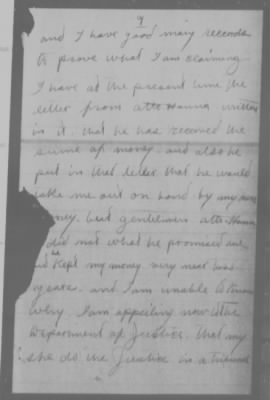 9
and I have good many records
to prove what I am claiming
I have at the present time the
letter from atto Hanna written
in it that he has received the
sume of money and also he
put in that letter that he would
take me out on bond by my
money. but gentlemen atto Hanna
did not what he promised me
kept my money very near two
years. and I am unable to
why. I am appealing now to the
Department of Justice. that my
she do the Justice in a